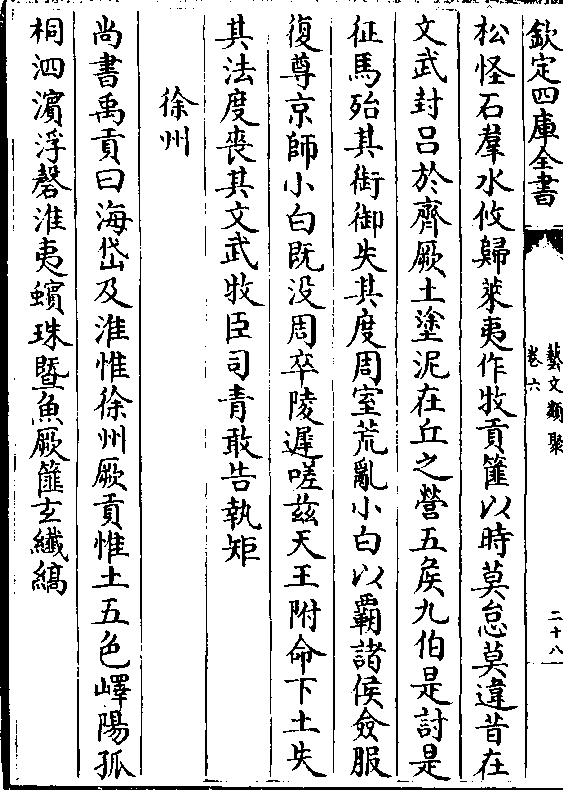 欽定四庫全書
藝文類聚
卷六
二十八
松怪石羣水攸歸萊夷作牧貢篚以時莫怠莫違昔在
文武封呂於齊厥土塗泥在丘之營五侯九伯是討是
征馬殆其銜御失其度周室荒亂小白以霸諸侯僉服
復尊京師小白既没周卒陵遲嗟兹天王附命下土失
其法度喪其文武牧臣司青敢告執矩
徐州
尚書禹貢曰海岱及淮惟徐州厥貢惟土五色嶧陽孤
桐泗濱浮磬淮夷蠙珠暨魚厥篚玄纖縞